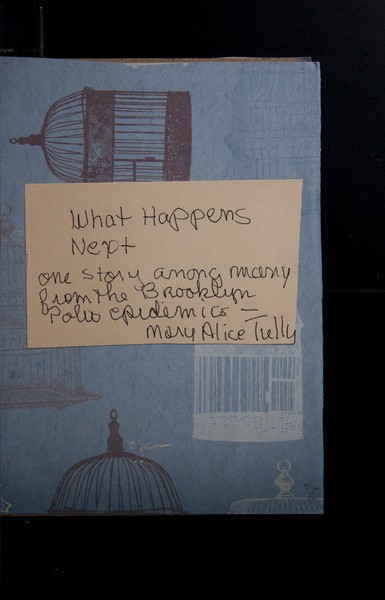 What Happens
Next
one story among many
from the Brooklyn
Polio epidemics –
Mary Alice Tully